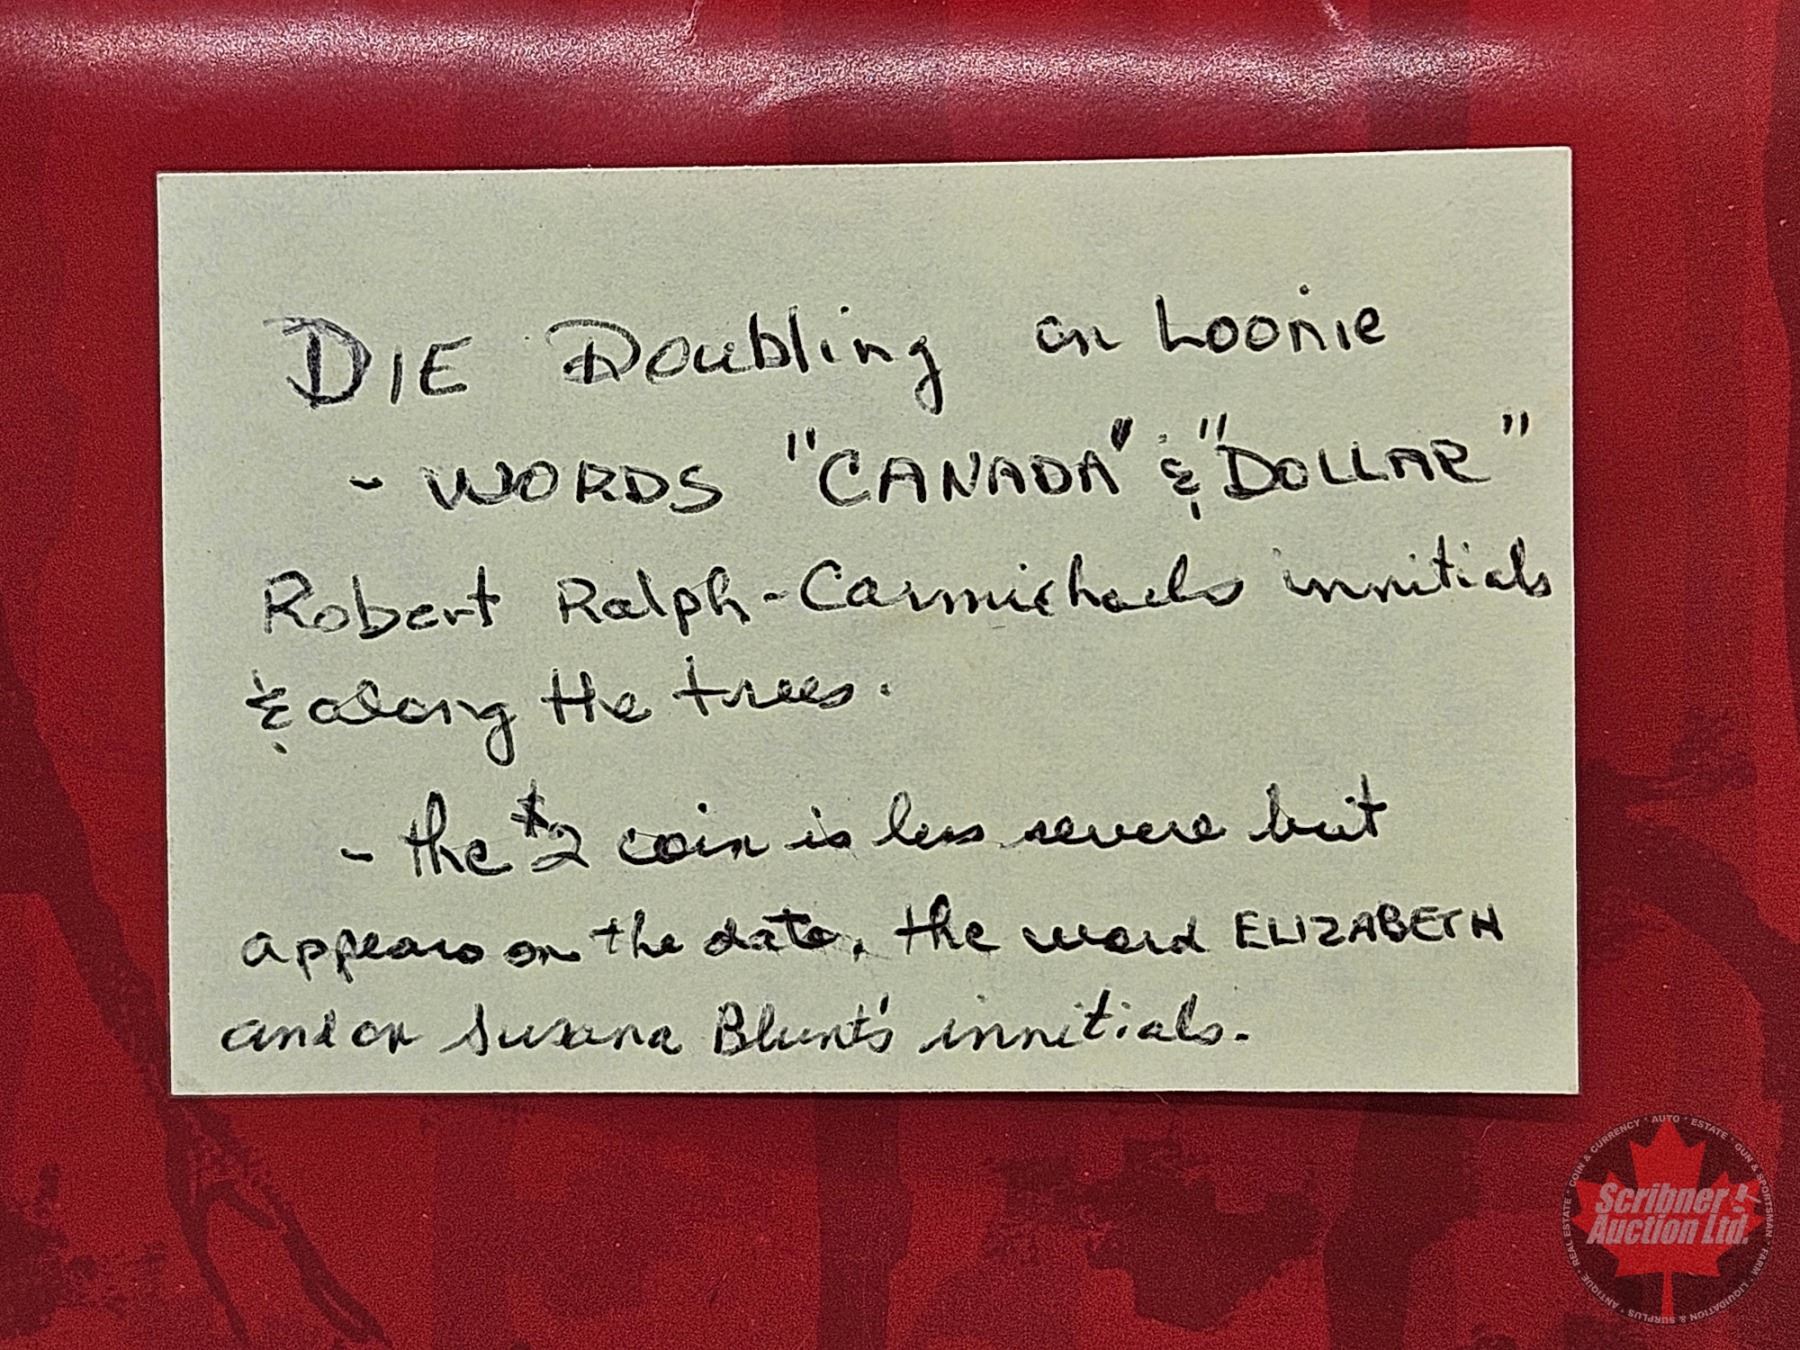 DIE Doubling on Loonie
- WORDS "CANADA" & "DOLLAR"
Robert Ralph-Carmichaels innitials
& along the trees.
- the $2 coin is less severe but
appears on the date, the word ELIZABETH
and or Susana Blunt's innitials.
Scribner
Auction Ltd.
COIN & CURRENCY · AUTO · ESTATE · GUN & SPORTSMAN · FARM · LIQUIDATION & SURPLUS · ANTIQUE · REAL ESTATE ·